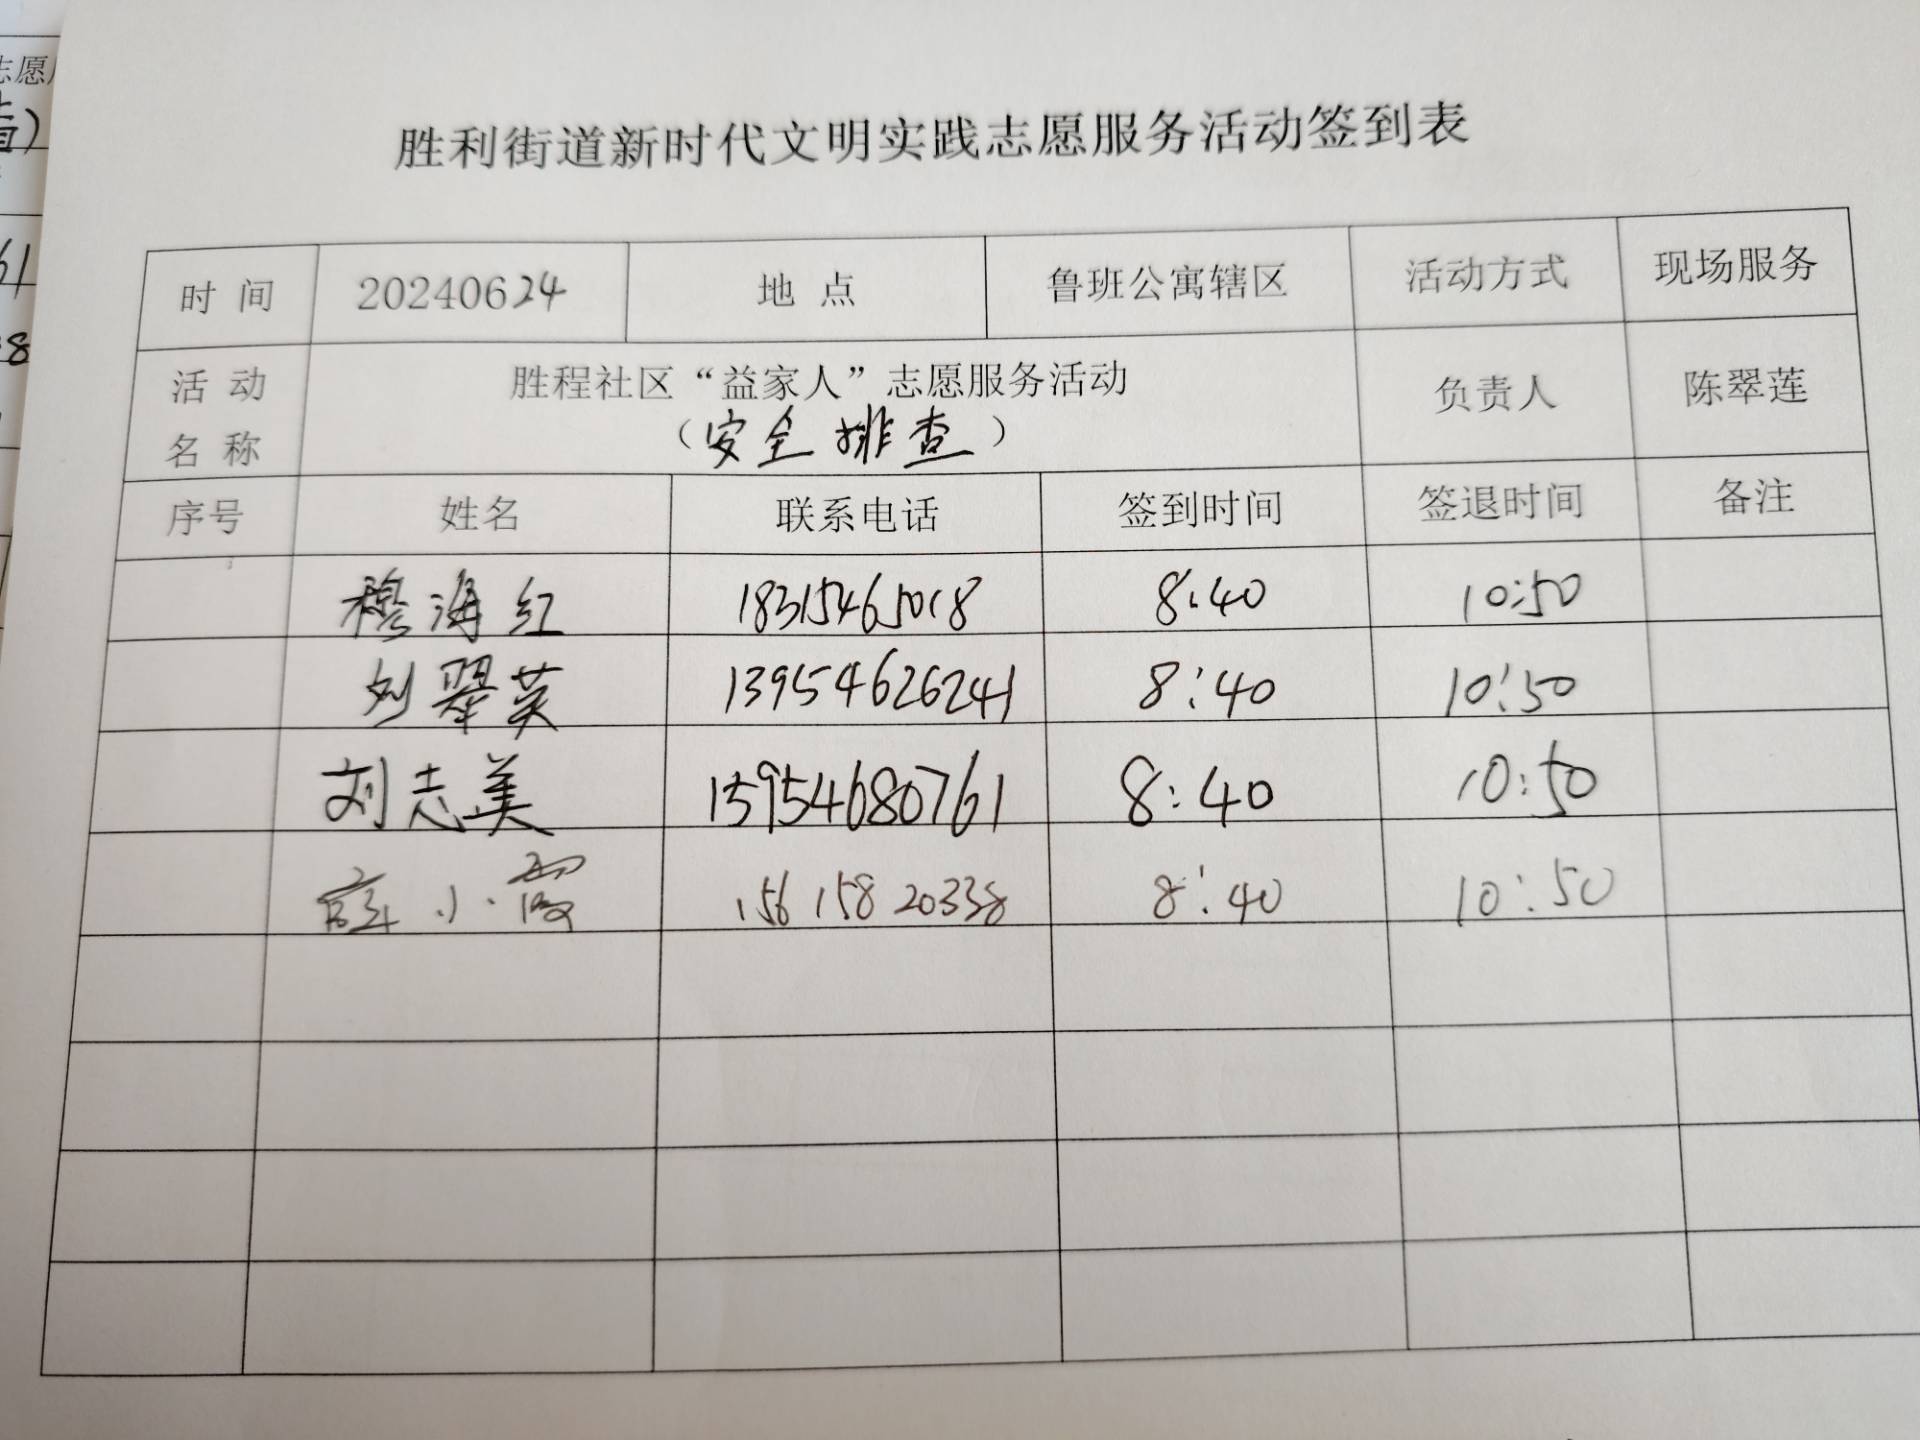 胜利街道新时代文明实践志愿服务活动签到表
时 间 20240624 地 点 鲁班公寓辖区 活动方式 现场服务
活 动 名 称 胜程社区“益家人”志愿服务活动 负责人 陈翠莲
（安全排查）
序号 姓名 联系电话 签到时间 签退时间 备注
穆海红 18315465018 8:40 10:50
刘翠英 13954626241 8:40 10:50
刘志美 15954680761 8:40 10:50
薛小霞 156 158 20338 8:40 10:50
志愿
61
8